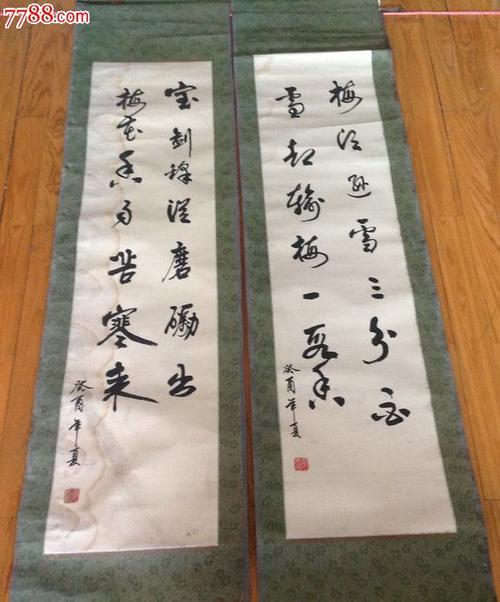 7788.com
梅须逊雪三分白
雪却输梅一段香
癸酉年夏
宝剑锋从磨砺出
梅花香自苦寒来
癸酉年夏